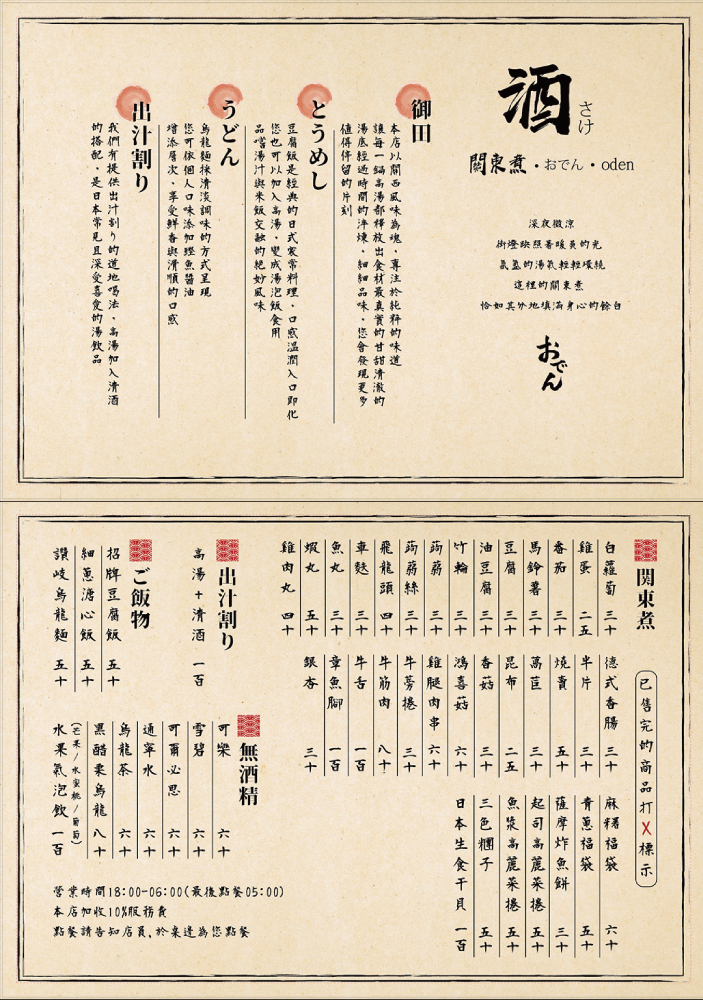 酒
さけ
關東煮・おでん・oden
深夜微涼
街燈映照著暖黃的光
氤氳的湯氣輕輕環繞
這裡的關東煮
恰如其分地填滿身心的餘白
おでん
御田
本店以關西風味為魂，專注於純粹的味道
讓每一鍋高湯都釋放出食材最真實的甘甜清澈的
湯底經過時間的淬煉，細細品味，您會發現更多
值得停留的片刻
とうめし
豆腐飯是經典的日式家常料理，口感溫潤入口即化
您也可以加入高湯，變成湯泡飯食用
品嚐湯汁與米飯交融的絕妙風味
うどん
烏龍麵採清淡調味的方式呈現
您可依個人口味添加鰹魚醬油
增添層次，享受鮮香與滑順的口感
出汁割り
我們有提供出汁割り的道地喝法，高湯加入清酒
的搭配，是日本常見且深受喜愛的湯飲品
関東煮
已售完的商品打X標示
白蘿蔔 三十
雞蛋 二五
番茄 三十
馬鈴薯 三十
豆腐 三十
油豆腐 三十
竹輪 三十
蒟蒻 三十
蒟蒻絲 三十
飛龍頭 四十
車麩 三十
魚丸 三十
蝦丸 五十
雞肉丸 四十
德式香腸 三十
半片 三十
燒賣 五十
萵苣 三十
昆布 二五
香菇 三十
鴻喜菇 六十
雞腿肉串 六十
牛蒡捲 三十
牛筋肉 八十
牛舌 一百
章魚腳 一百
銀杏 三十
麻糬福袋 六十
青蔥福袋 五十
薩摩炸魚餅 三十
起司高麗菜捲 五十
魚漿高麗菜捲 五十
三色糰子 五十
日本生食干貝 一百
出汁割り
高湯+清酒 一百
ご飯物
招牌豆腐飯 五十
細蔥溏心飯 五十
讚岐烏龍麵 五十
無酒精
可樂 六十
雪碧 六十
可爾必思 六十
通寧水 六十
烏龍茶 六十
黑醋栗烏龍 八十
(芒果/水蜜桃/葡萄)
水果氣泡飲 一百
營業時間18:00-06:00(最後點餐05:00)
本店加收10%服務費
點餐請告知店員,於桌邊為您點餐